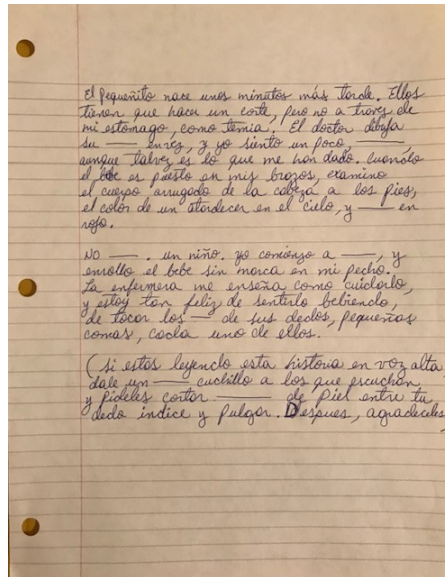 El Pequeñito nace unos minutos más tarde. Ellos
tienen que hacer un corte, pero no a traves de
mi estomago, como temia. El doctor dibuja
su —— en vez, y yo siento un poco, ——,
aunque talvez es lo que me han dado. Cuando
el bebe es puesto en mis brazos, examino
el cuerpo arrugado de la cabeza a los pies,
el color de un atardecer en el cielo, y —— en
rojo.
NO ——. un niño. yo comienzo a ——, y
enrollo el bebe sin marca en mi pecho.
La enfermera me enseña como cuidarlo,
y estoy tan feliz de sentirlo bebiendo,
de tocar los —— de sus dedos, pequeñas
comas, cada uno de ellos.
(si estas leyendo esta historia en voz alta
dale un —— cuchillo a los que escuchan
y pideles cortar —— de piel entre tu
dedo indice y pulgar. Despues, agradeceles